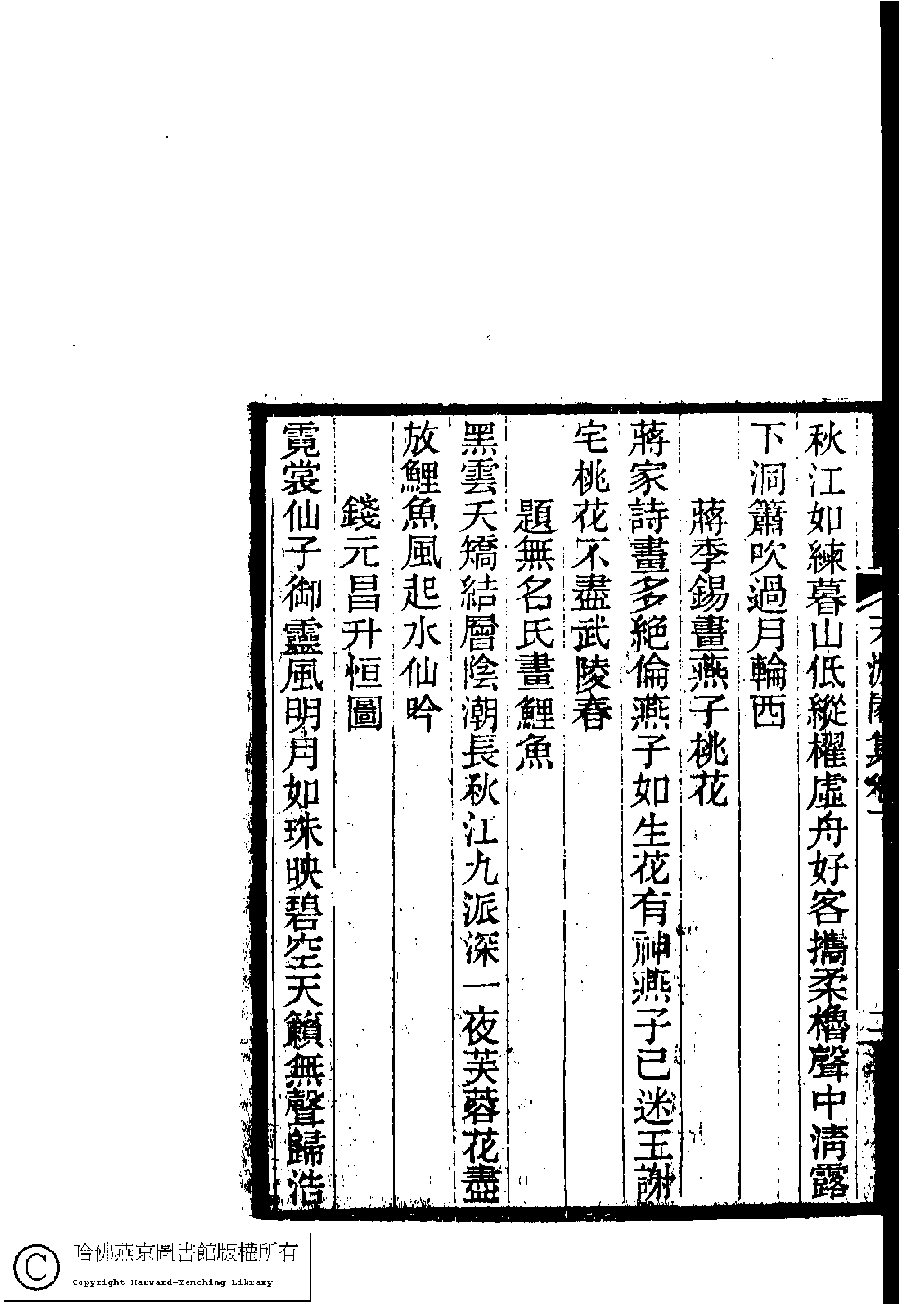 秋江如練暮山低縱櫂虛舟好客攜柔櫓聲中淸露
下洞簫吹過月輪西
蔣季錫畫燕子桃花
蔣家詩畫多絕倫燕子如生花有神燕子已迷王謝
宅桃花不盡武陵春
題無名氏畫鯉魚
黑雲夭矯結層陰潮長秋江九派深一夜芙蓉花盡
放鯉魚風起水仙吟
錢元昌升恒圖
霓裳仙子御靈風明月如珠映碧空天籟無聲歸浩
哈佛燕京圖書館版權所有
Copyright Harvard-Yenching Library